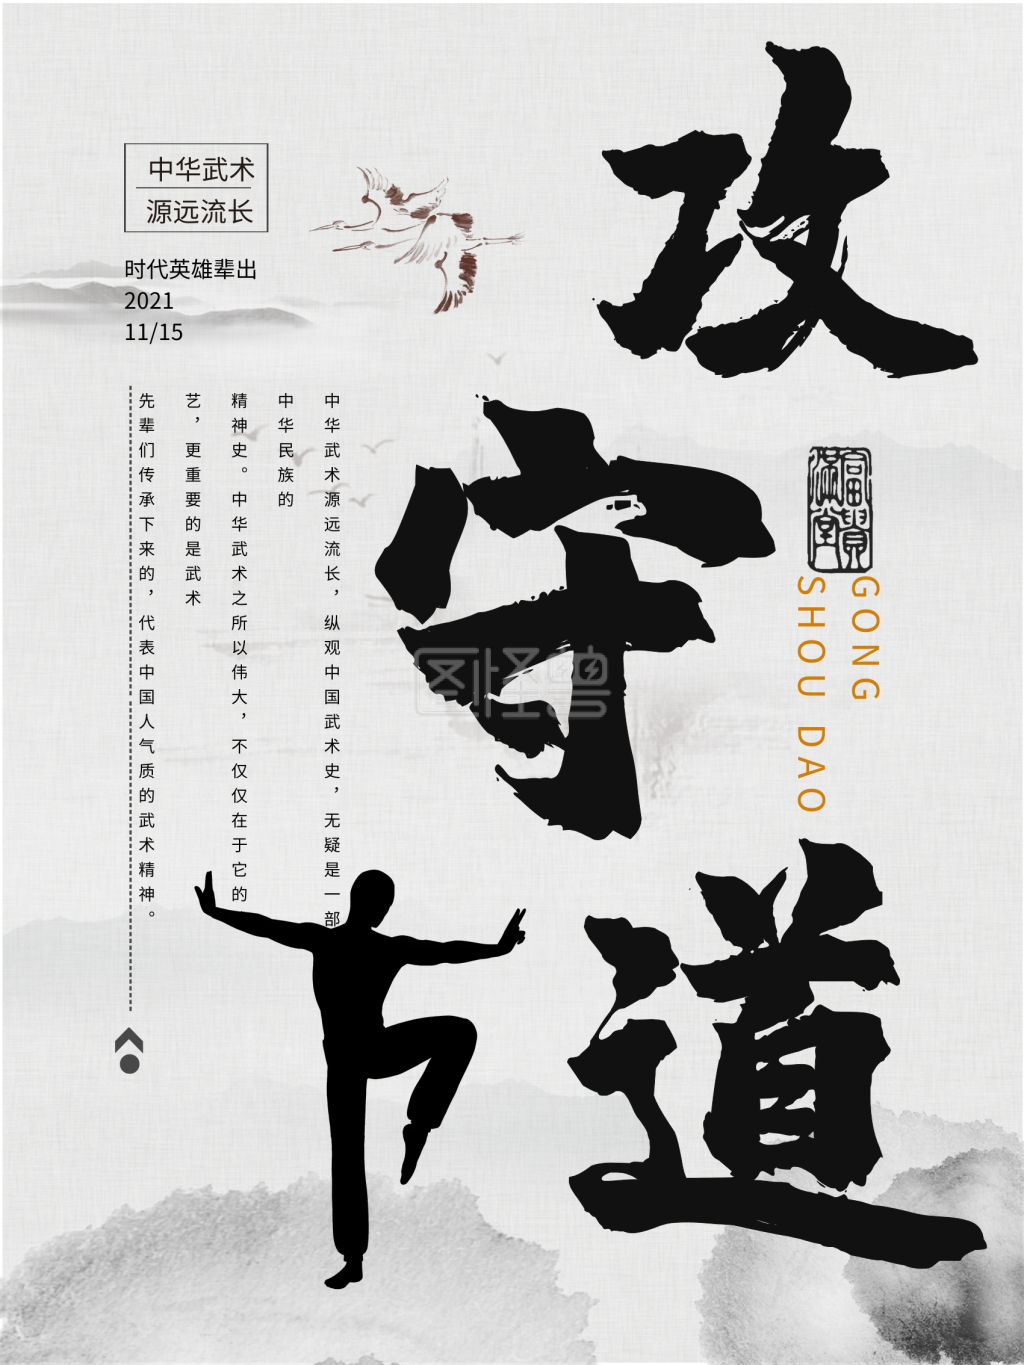 攻
守
道
中华武术
源远流长
时代英雄辈出
2021
11/15
中华武术源远流长，纵观中国武术史，无疑是一部
中华民族的
精神史。中华武术之所以伟大，不仅仅在于它的
艺，更重要的是武术
先辈们传承下来的，代表中国人气质的武术精神。
富贵
满堂
GONG
SHOU DAO
图怪兽